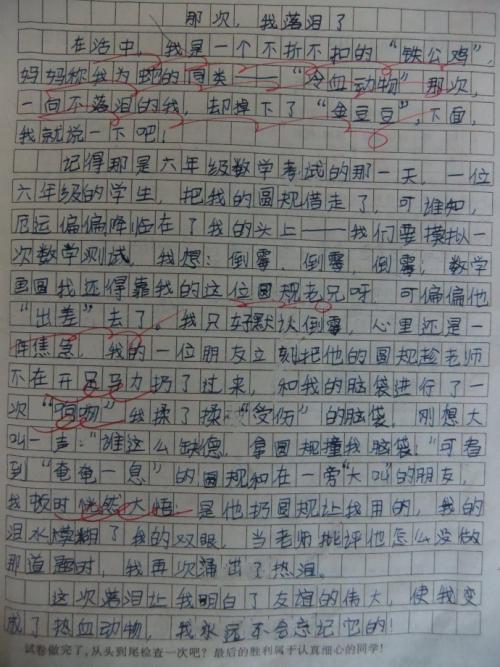 那次，我落泪了
在活中，我是一个不折不扣的“铁公鸡”，
妈妈称我为蛇的同类——“冷血动物”那次，
一向不落泪的我，却掉下了“金豆豆”，下面，
我就说一下吧！
记得那是六年级数学考试的那一天，一位
六年级的学生，把我的圆规借走了，可谁知，
厄运偏偏降临在了我的头上——我们要模拟一
次数学测试，我想：倒霉，倒霉，倒霉；数学
画圆我还得靠我的这位圆规老兄呀，可偏偏他
“出差”去了。我只好默认倒霉，心里还是一
阵焦急，我的一位朋友立刻把他的圆规趁老师
不在开足马力扔了过来，和我的脑袋进行了一
次“ 吻”我揉了揉“受伤”的脑袋，刚想大
叫一声：“谁这么缺德，拿圆规撞我脑袋”可看
到“奄奄一息”的圆规和在一旁“大叫”的朋友，
我顿时恍然大悟：是他扔圆规让我用的，我的
泪水模糊了我的双眼，当老师批评他怎么没做
那道题时，我再次涌出了热泪。
这次落泪让我明白了友谊的伟大，使我变
成了热血动物，我永远不会忘记它的！
试卷做完了，从头到尾检查一次吧？最后的胜利属于认真细心的同学！